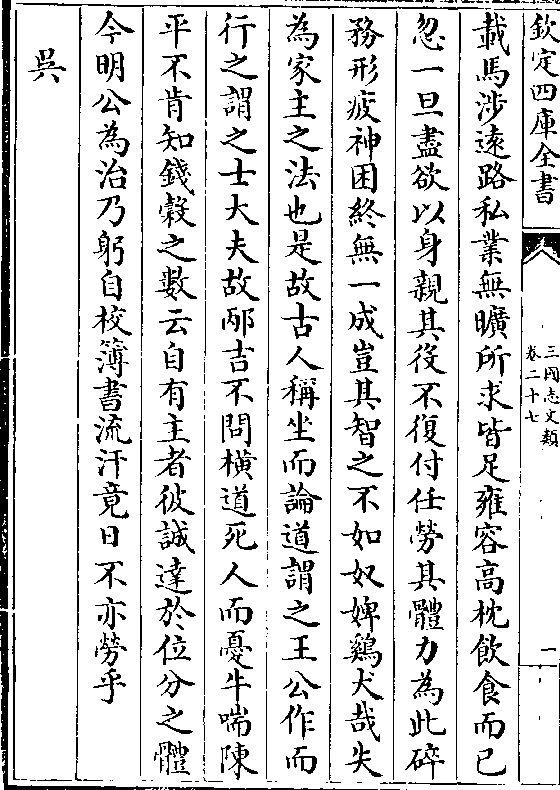 欽定四庫全書
三國志文類
卷二十七
一
載馬涉逺路私業無曠所求皆足雍容高枕飲食而已
忽一旦盡欲以身親其役不復付任勞其體力為此碎
務形疲神困終無一成豈其智之不如奴婢鷄犬哉失
為家主之法也是故古人稱坐而論道謂之王公作而
行之謂之士大夫故邴吉不問橫道死人而憂牛喘陳
平不肯知錢穀之數云自有主者彼誠達於位分之體
今明公為治乃躬自校簿書流汗竟日不亦勞乎
吳